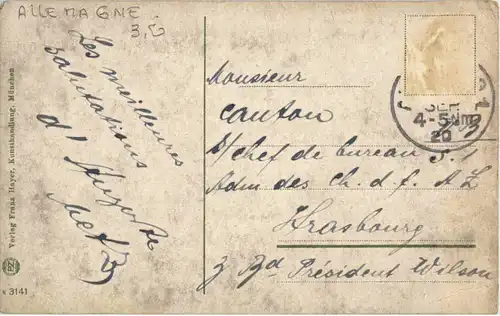 ALLEMAGNE
Les meilleures
salutations
d'
Metz
Monsieur
Canton
S/Chef de bureau
Adm des Ch. d. f. A L
Strasbourg
3 Bd Président Wilson
4-5 Nm
20
Verlag Franz Hayer, Kunsthandlung, München
3141